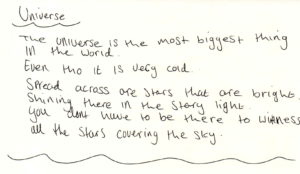 Universe
The universe is the most biggest thing
in the world.
Even tho it is very cold.
Spread across are stars that are bright.
Shining there in the story light.
you dont have to be there to witness
all the stars covering the sky.